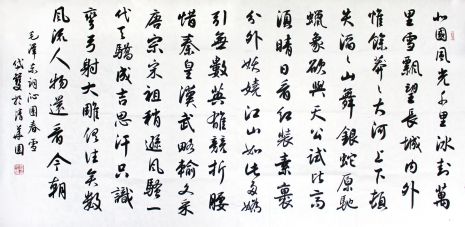 北國風光千里冰封萬
里雪飄望長城內外
惟餘莽々大河上下頓
失滔々山舞銀蛇原馳
蠟象欲與天公試比高
須晴日看紅裝素裹
分外妖嬈江山如此多嬌
引無數英雄競折腰
惜秦皇漢武略輸文采
唐宗宋祖稍遜風騷一
代天驕成吉思汗只識
彎弓射大雕俱往矣數
風流人物還看今朝
毛澤東詞沁園春雪
於清華園